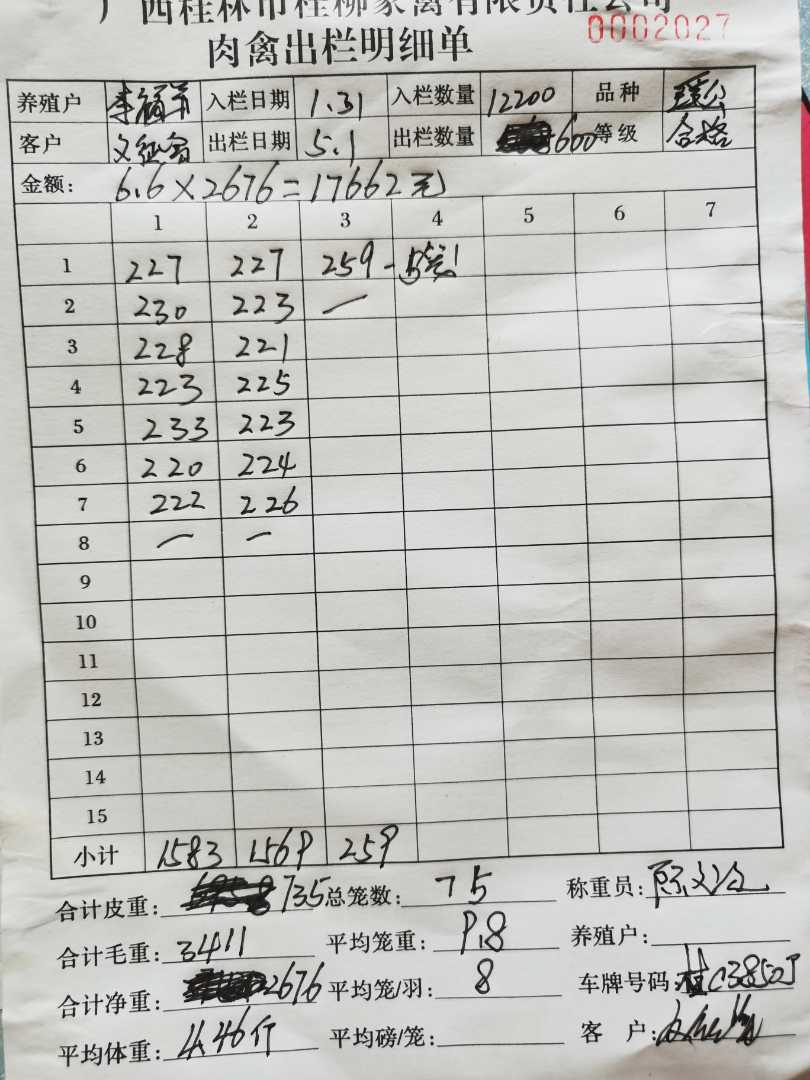 广西桂林市桂柳家禽有限责任公司
0002027
肉禽出栏明细单
养殖户 入栏日期 1.31 入栏数量 12200 品种
客户 出栏日期 5.1 出栏数量 600 等级 合格
金额: 6.6×2676=17662元
1 2 3 4 5 6 7
1 227 227 259 -
2 230 223 —
3 228 221
4 223 225
5 233 223
6 220 224
7 222 226
8 — —
9
10
11
12
13
14
15
小计 1583 1569 259
合计皮重: 735 总笼数: 75 称重员:
合计毛重: 3411 平均笼重: 9.8 养殖户:
合计净重: 2676 平均笼/羽: 8 车牌号码: 桂C3850
平均体重: 4.46斤 平均磅/笼: 客户: